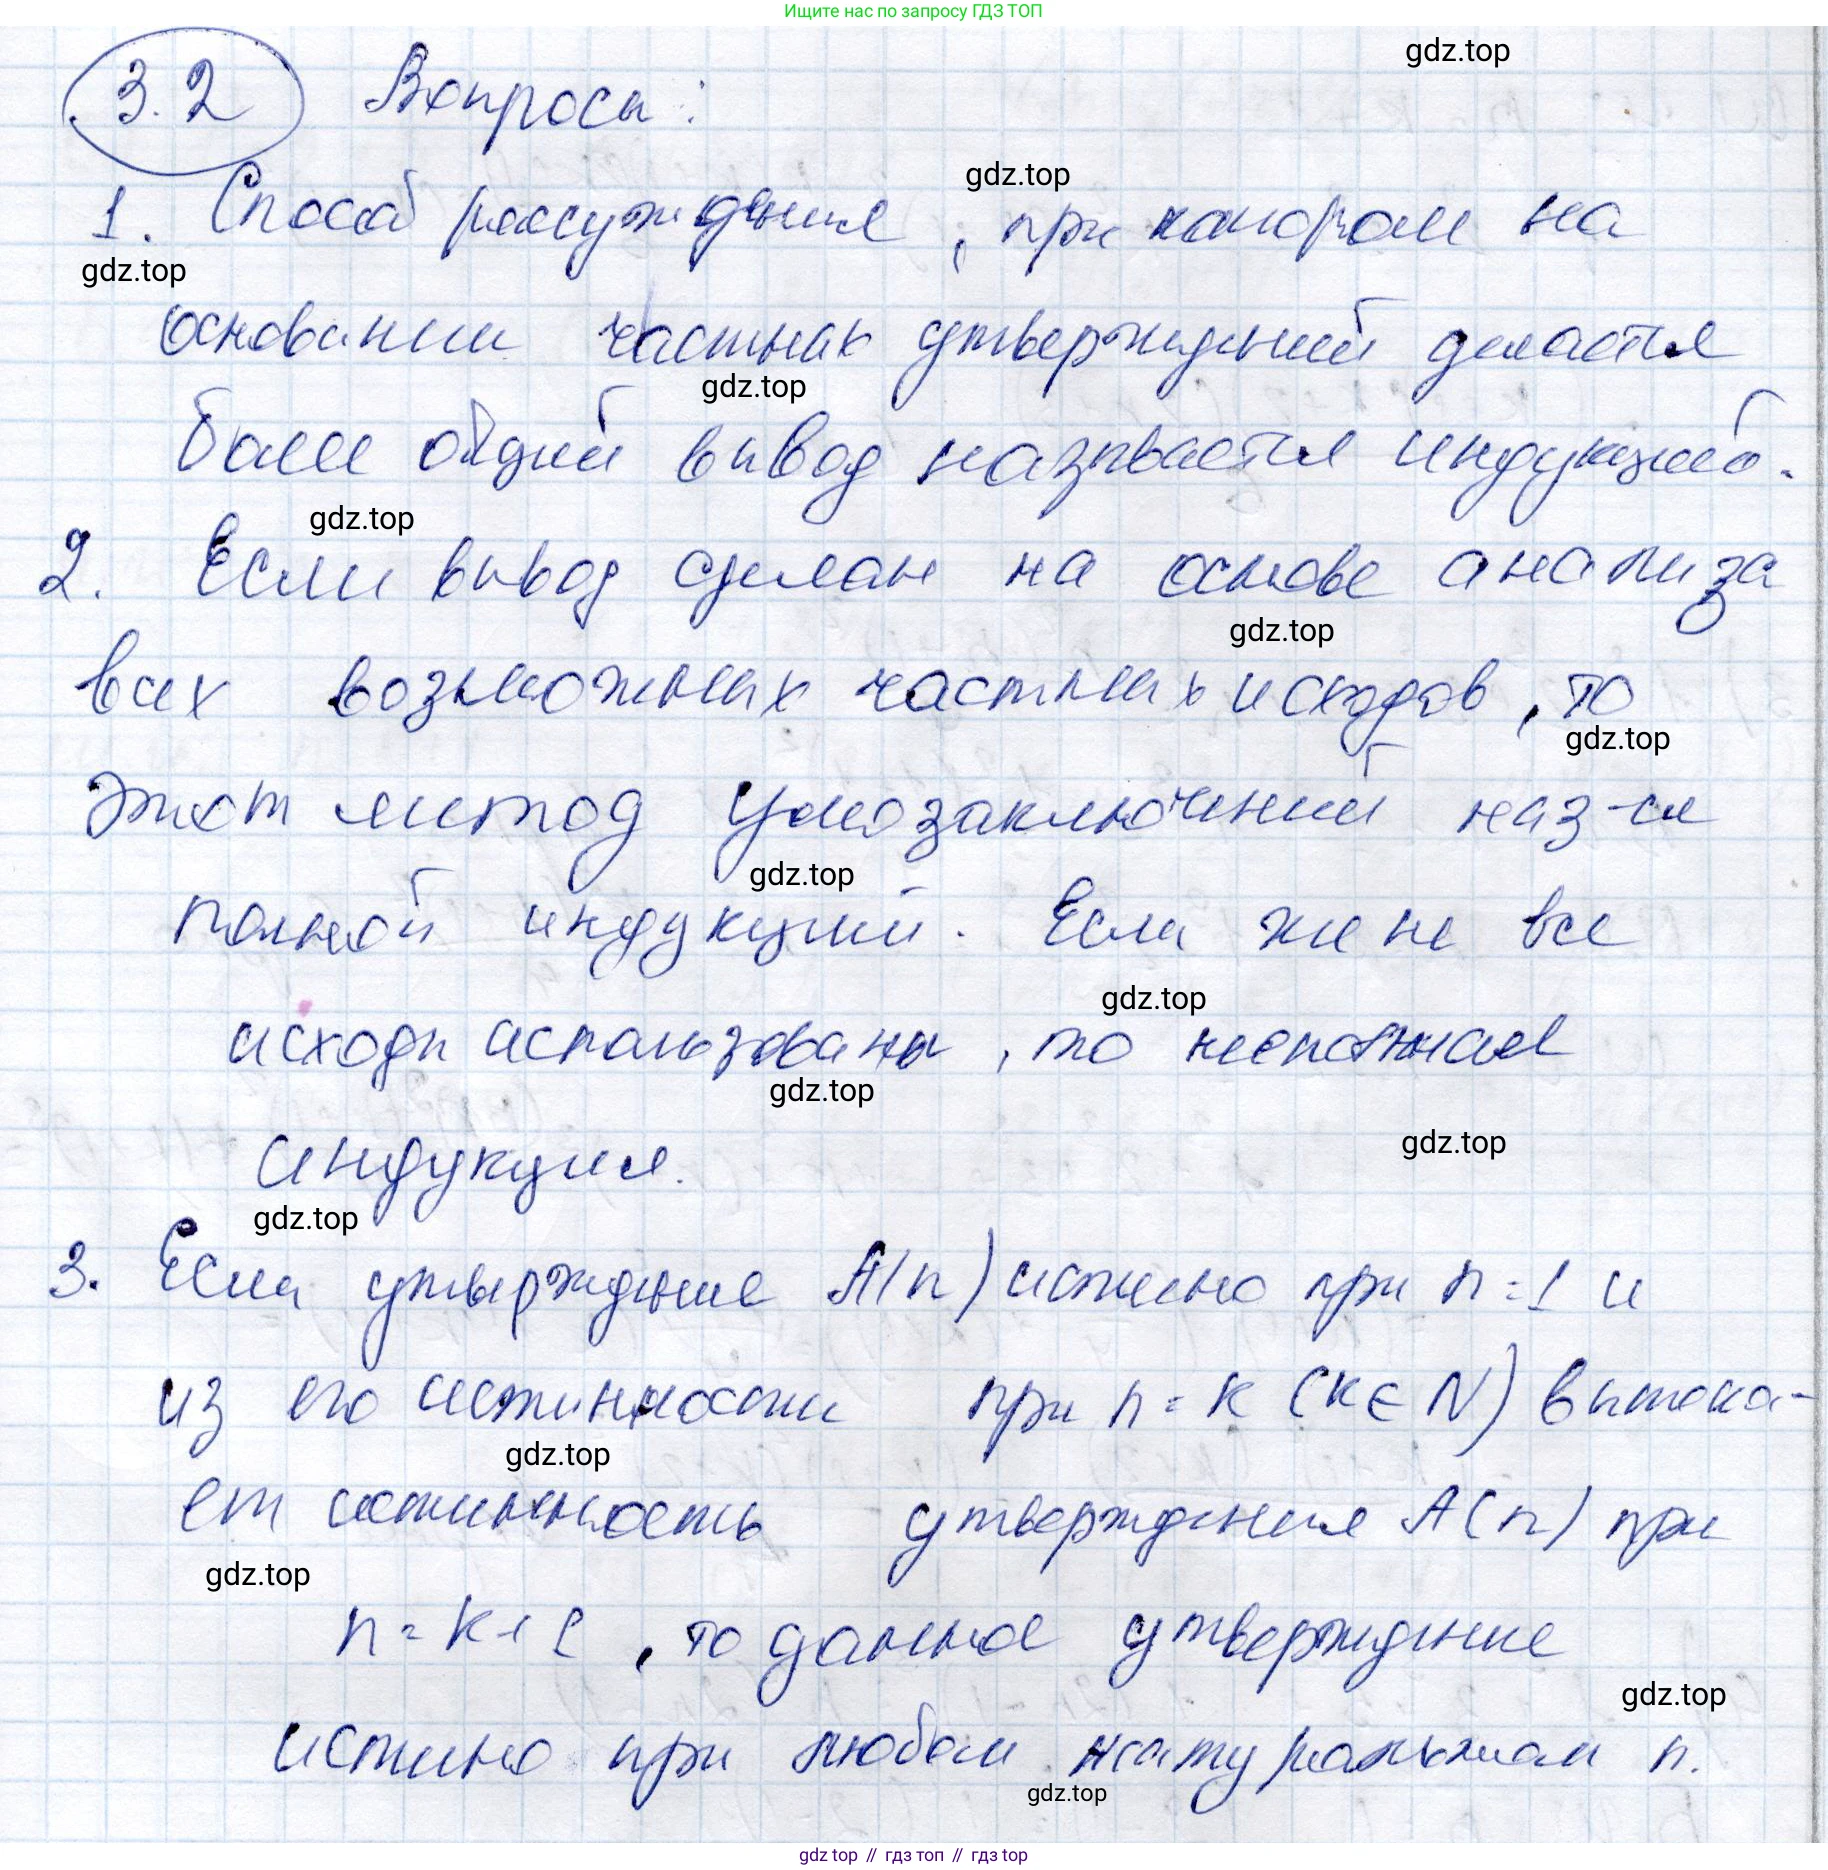 Ищите нас по запросу ГДЗ ТОП
gdz.top
3.2 Вопросы:
gdz.top
1. Способ рассуждения, при котором на
gdz.top
основании частных утверждений делается
gdz.top
более общий вывод называется индукцией.
gdz.top
2. Если вывод сделан на основе анализа
gdz.top
всех возможных частных исходов, то
gdz.top
этот метод умозаключений наз-ся
gdz.top
полной индукций. Если же не все
gdz.top
исходы использованы, то неполная
gdz.top
gdz.top
индукция.
gdz.top
3. Если утверждение A(n) истинно при n=1 и
из его истинности при n=k (k∈N) вытека-
gdz.top
ет истинность утверждения A(n) при
gdz.top
n=k+1, то данное утверждение
gdz.top
истино при любом натуральном n.
gdz.top
gdz top // гдз топ // гдз top